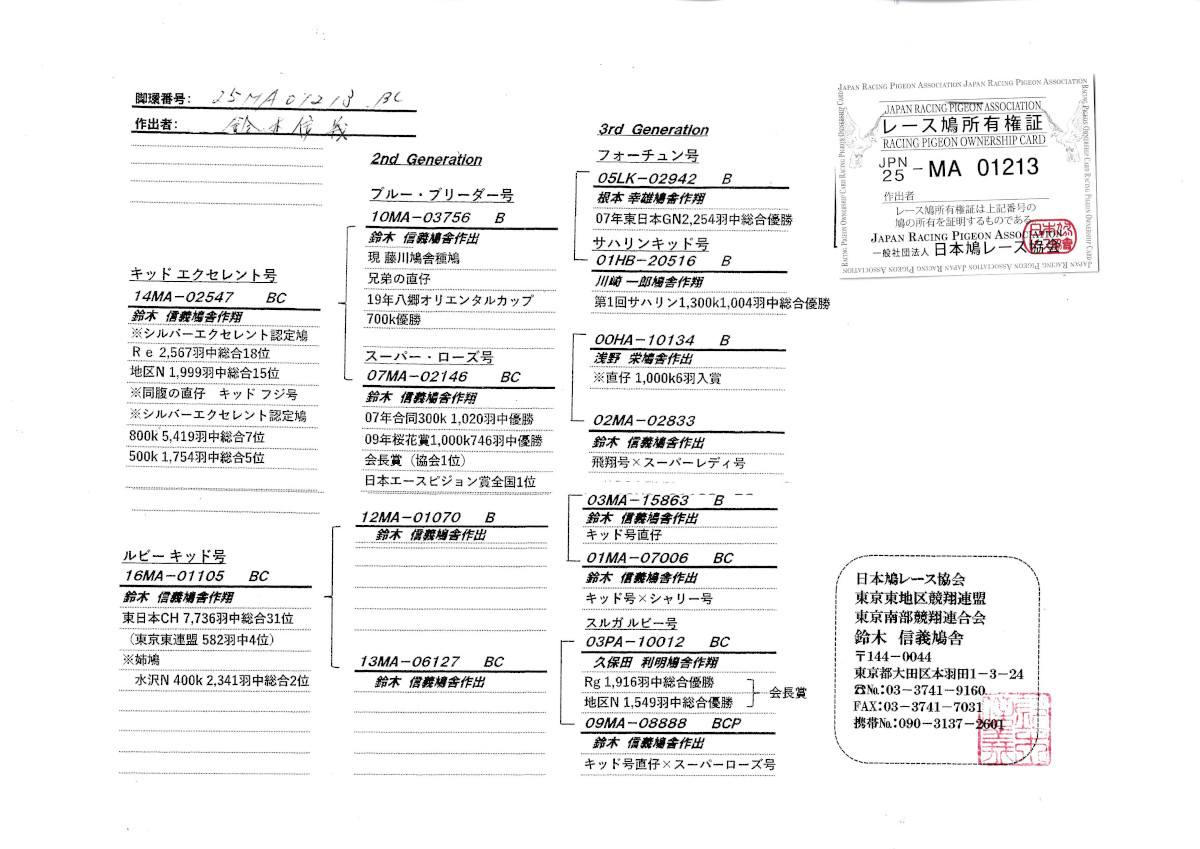 脚環番号: 25MA01213 BC
作出者: 鈴木信義
キッド エクセレント号
14MA-02547 BC
鈴木 信義鳩舎作翔
※シルバーエクセレント認定鳩
Re 2,567羽中総合18位
地区N 1,999羽中総合15位
※同腹の直仔 キッド フジ号
※シルバーエクセレント認定鳩
800k 5,419羽中総合7位
500k 1,754羽中総合5位
ルビー キッド号
16MA-01105 BC
鈴木 信義鳩舎作翔
東日本CH 7,736羽中総合31位
(東京東連盟 582羽中4位)
※姉鳩
水沢N 400k 2,341羽中総合2位
2nd Generation
ブルー・ブリーダー号
10MA-03756 B
鈴木 信義鳩舎作出
現 藤川鳩舎種鳩
兄弟の直仔
19年八郷オリエンタルカップ
700k優勝
スーパー・ローズ号
07MA-02146 BC
鈴木 信義鳩舎作翔
07年合同300k 1,020羽中優勝
09年桜花賞1,000k746羽中優勝
会長賞(協会1位)
日本エースピジョン賞全国1位
12MA-01070 B
鈴木 信義鳩舎作出
13MA-06127 BC
鈴木 信義鳩舎作出
3rd Generation
フォーチュン号
05LK-02942 B
根本 幸雄鳩舎作翔
07年東日本GN2,254羽中総合優勝
サハリンキッド号
01HB-20516 B
川崎 一郎鳩舎作翔
第1回サハリン1,300k1,004羽中総合優勝
00HA-10134 B
浅野 栄鳩舎作出
※直仔 1,000k6羽入賞
02MA-02833
鈴木 信義鳩舎作出
飛翔号×スーパーレディ号
03MA-15863 B
鈴木 信義鳩舎作出
キッド号直仔
01MA-07006 BC
鈴木 信義鳩舎作出
キッド号×シャリー号
スルガ ルビー号
03PA-10012 BC
久保田 利明鳩舎作翔
Rg 1,916羽中総合優勝
地区N 1,549羽中総合優勝
会長賞
09MA-08888 BCP
鈴木 信義鳩舎作出
キッド号直仔×スーパーローズ号
JAPAN RACING PIGEON ASSOCIATION JAPAN RACING PIGEON ASSOCIATION
JAPAN RACING PIGEON ASSOCIATION
レース鳩所有権証
RACING PIGEON OWNERSHIP CARD
JPN
25 - MA 01213
作出者
レース鳩所有権証は上記番号の
鳩の所有を証明するものである
JAPAN RACING PIGEON ASSOCIATION
一般社団法人 日本鳩レース協会
日本鳩レース協会
東京東地区競翔連盟
東京南部競翔連合会
鈴木 信義鳩舎
〒144-0044
東京都大田区本羽田1-3-24
☎№:03-3741-9160
FAX:03-3741-7031
携帯№:090-3137-2601